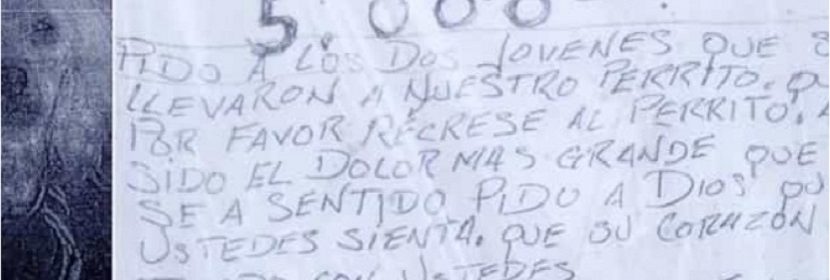 5.000
PIDO A LOS DOS JOVENES QUE S
LLEVARON A NUESTRO PERRITO. QU
POR FAVOR RECRESE AL PERRITO. A
SIDO EL DOLOR MAS GRANDE QUE
SE A SENTIDO PIDO A DIOS QU
USTEDES SIENTA. QUE SU CORAZON
CON USTEDES